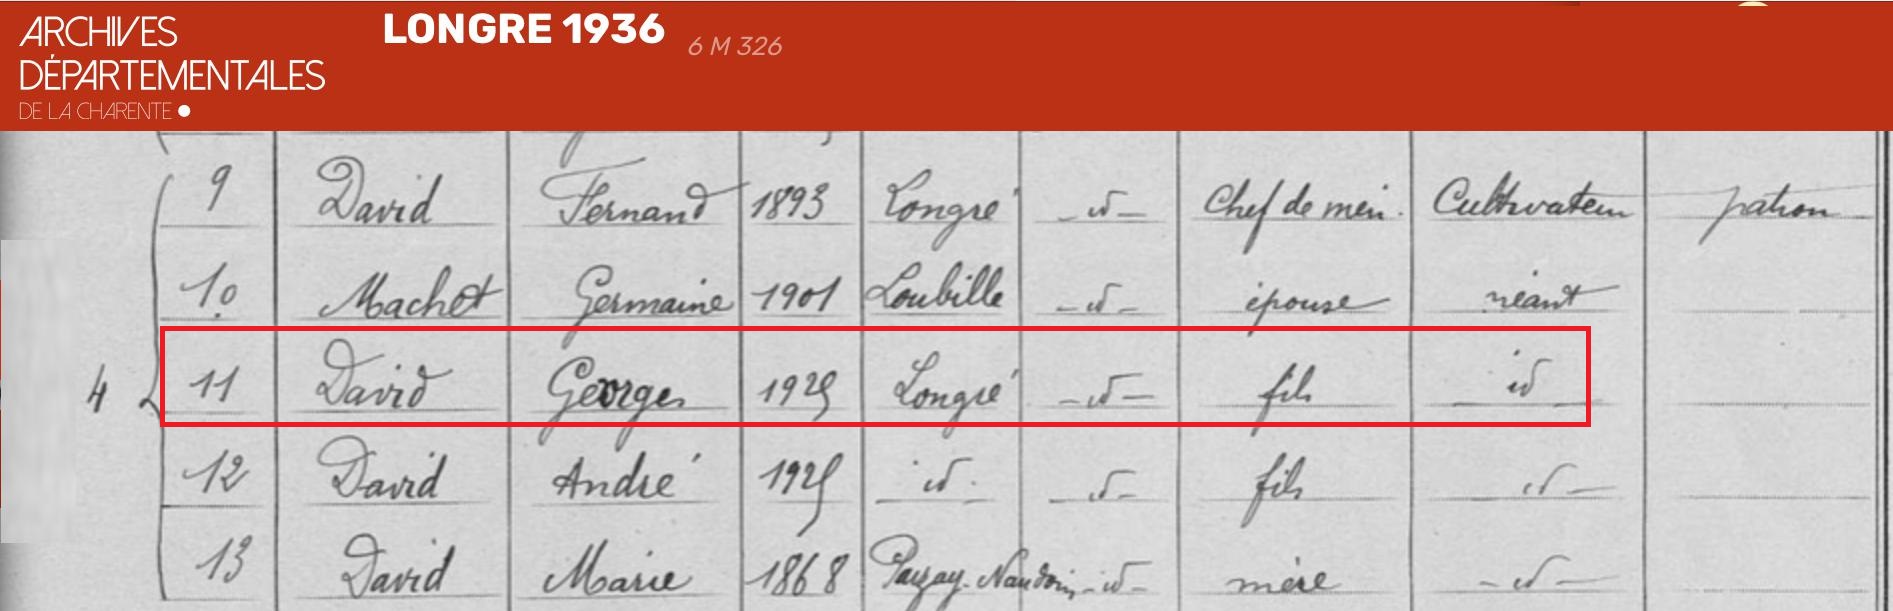 ARCHIVES
DÉPARTEMENTALES
DE LA CHARENTE
LONGRE 1936 6 M 326
9 David Fernand 1893 Longré -id- Chef de mén. Cultivateur patron
10 Machet Germaine 1901 Loubille -id- épouse néant
4 11 David Georges 1925 Longré -id- fils id
12 David André 1925 id. -id- fils id-
13 David Marie 1868 Paizay-Naudoin -id- mère -id-